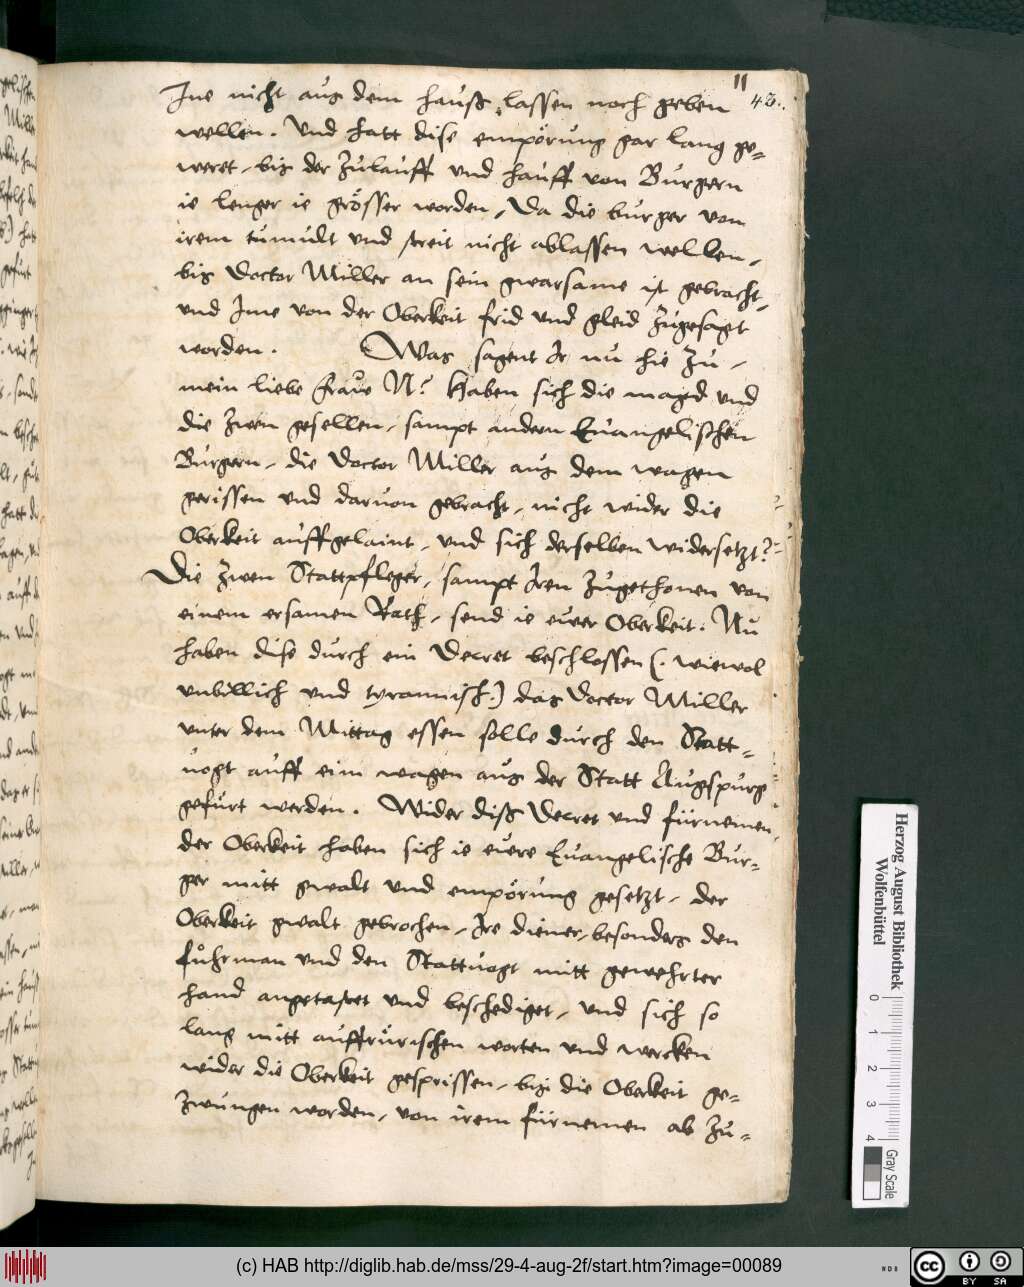 11
42.
Ime nicht auß dem hauß lassen noch geben
wellen. Vnd hatt dise empörung gar lang ge=
weret, biß der Zulauff vnd hauff von Burgern
ie lenger ie grösser worden, Da die burger von
irem tumult vnd streit nicht ablassen wellen,
biß Doctor Miller an sein gwarsame ist gebracht,
vnd Ime von der Oberkeit frid vnd gleid zugesagt
worden. Was sagent Ir nu hie zu,
mein liebe fraue N? Haben sich die magd vnd
die zwen gesellen, sampt andern Euangelischen
Burgern, die Doctor Miller aus dem wagen
gerissen vnd daruon gebracht, nicht wider die
Oberkeit auffgelaint, vnd sich derselben widersetzt?
Die zwen Stattpfleger, sampt Iren zugethonen von
einem ersamen Rath, send ie euer Oberkeit. Nu
haben dise durch ein Decret beschlossen (. wiewol
vnbillich vnd tyrannisch.) das Doctor Miller
vnter dem Mittag essen solle durch den Statt=
uogt auff eim wagen aus der Statt Augspurg
gefürt werden. Wider diß Decret vnd fürnemen
der Oberkeit haben sich ie euere Euangelische Bur=
ger mitt gwalt vnd empörung gesetzt, der
Oberkeit gwalt gebrochen, Ire diener, besonders den
fuhrman vnd den Stattuogt mitt gewehrter
hand angetastet vnd beschediget, vnd sich so
lang mitt auffrürischen worten vnd wercken
wider die Oberkeit gesprissen, biß die Oberkeit ge=
zwungen worden, von irem fürnemen ab zu=
Herzog August Bibliothek
Wolfenbüttel
0 1 2 3 4
Gray Scale
(c) HAB http://diglib.hab.de/mss/29-4-aug-2f/start.htm?image=00089
cc BY SA